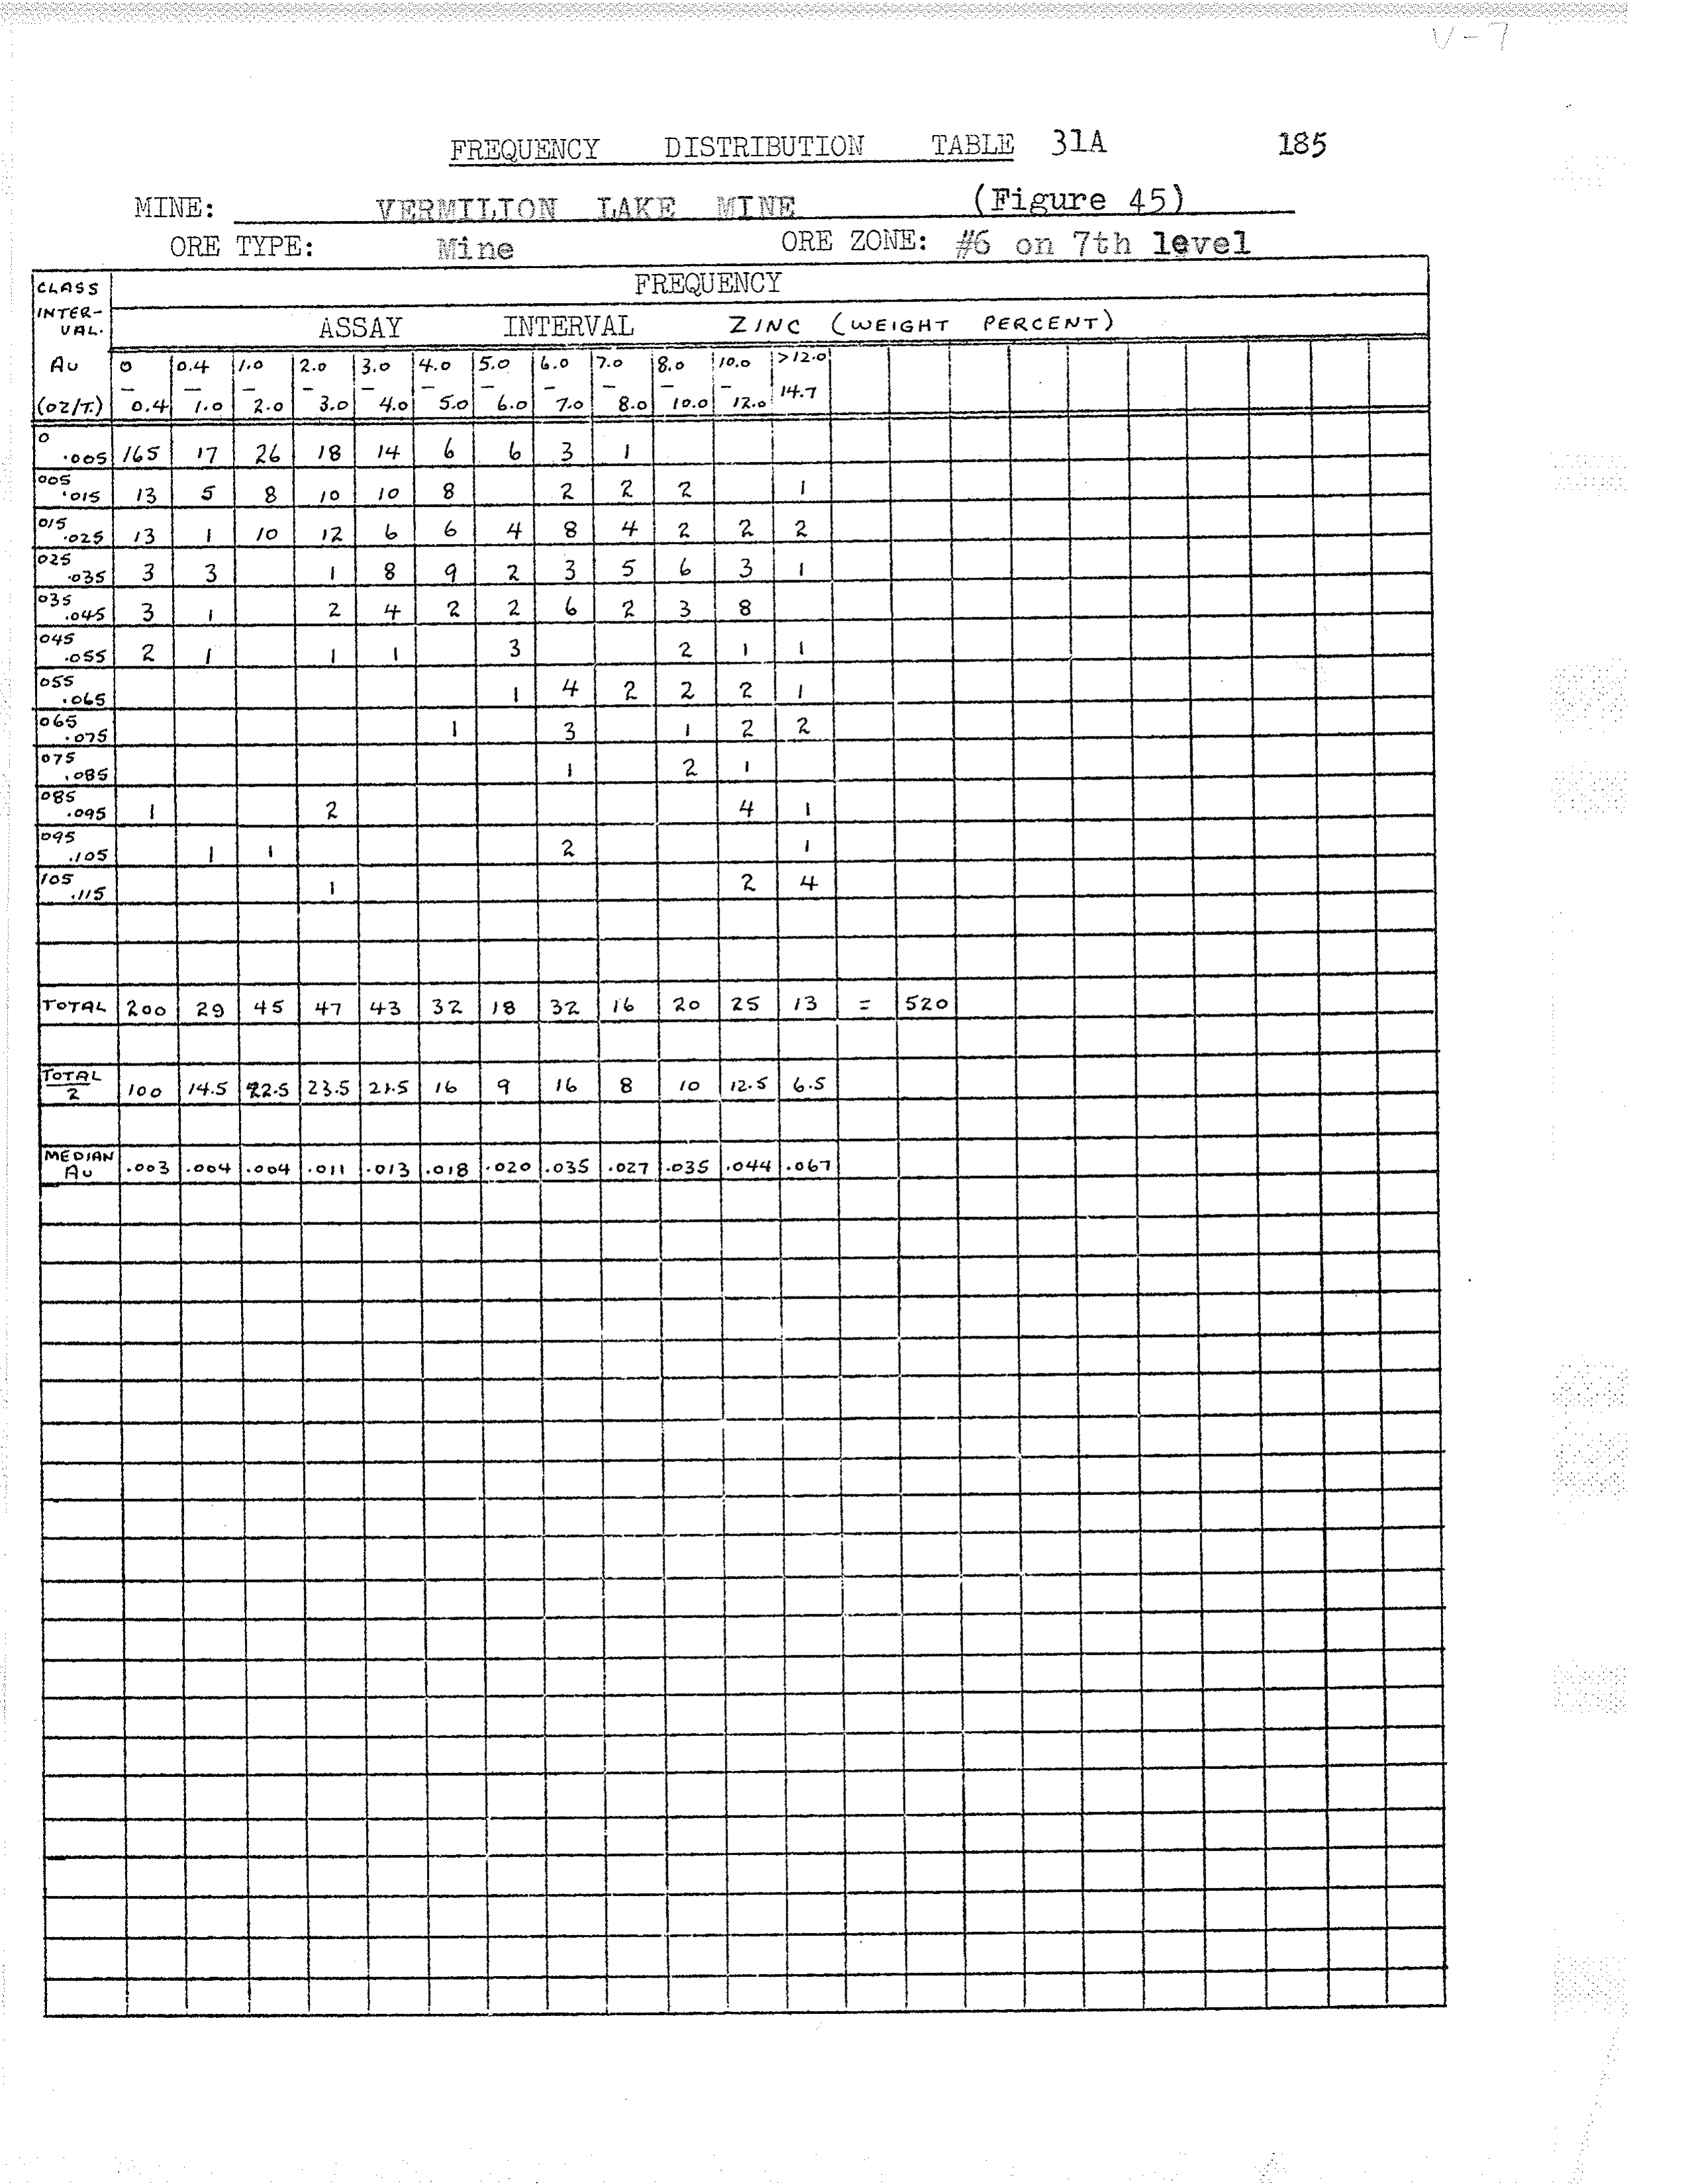 V-7
FREQUENCY DISTRIBUTION TABLE 31A 185
MINE: VERMILION LAKE MINE (Figure 45)
ORE TYPE: Mine ORE ZONE: #6 on 7th level
CLASS INTER-VAL. FREQUENCY
ASSAY INTERVAL ZINC (WEIGHT PERCENT)
Au 0 0.4 1.0 2.0 3.0 4.0 5.0 6.0 7.0 8.0 10.0 >12.0
– – – – – – – – – – –
(OZ/T.) 0.4 1.0 2.0 3.0 4.0 5.0 6.0 7.0 8.0 10.0 12.0 14.7
0 .005 165 17 26 18 14 6 6 3 1
005 .015 13 5 8 10 10 8 2 2 2 1
015 .025 13 1 10 12 6 6 4 8 4 2 2 2
025 .035 3 3 1 8 9 2 3 5 6 3 1
035 .045 3 1 2 4 2 2 6 2 3 8
045 .055 2 1 1 1 3 2 1 1
055 .065 1 4 2 2 2 1
065 .075 1 3 1 2 2
075 .085 1 2 1
085 .095 1 2 4 1
095 .105 1 1 2 1
105 .115 1 2 4
TOTAL 200 29 45 47 43 32 18 32 16 20 25 13 = 520
TOTAL 2 100 14.5 22.5 23.5 21.5 16 9 16 8 10 12.5 6.5
MEDIAN Au .003 .004 .004 .011 .013 .018 .020 .035 .027 .035 .044 .067